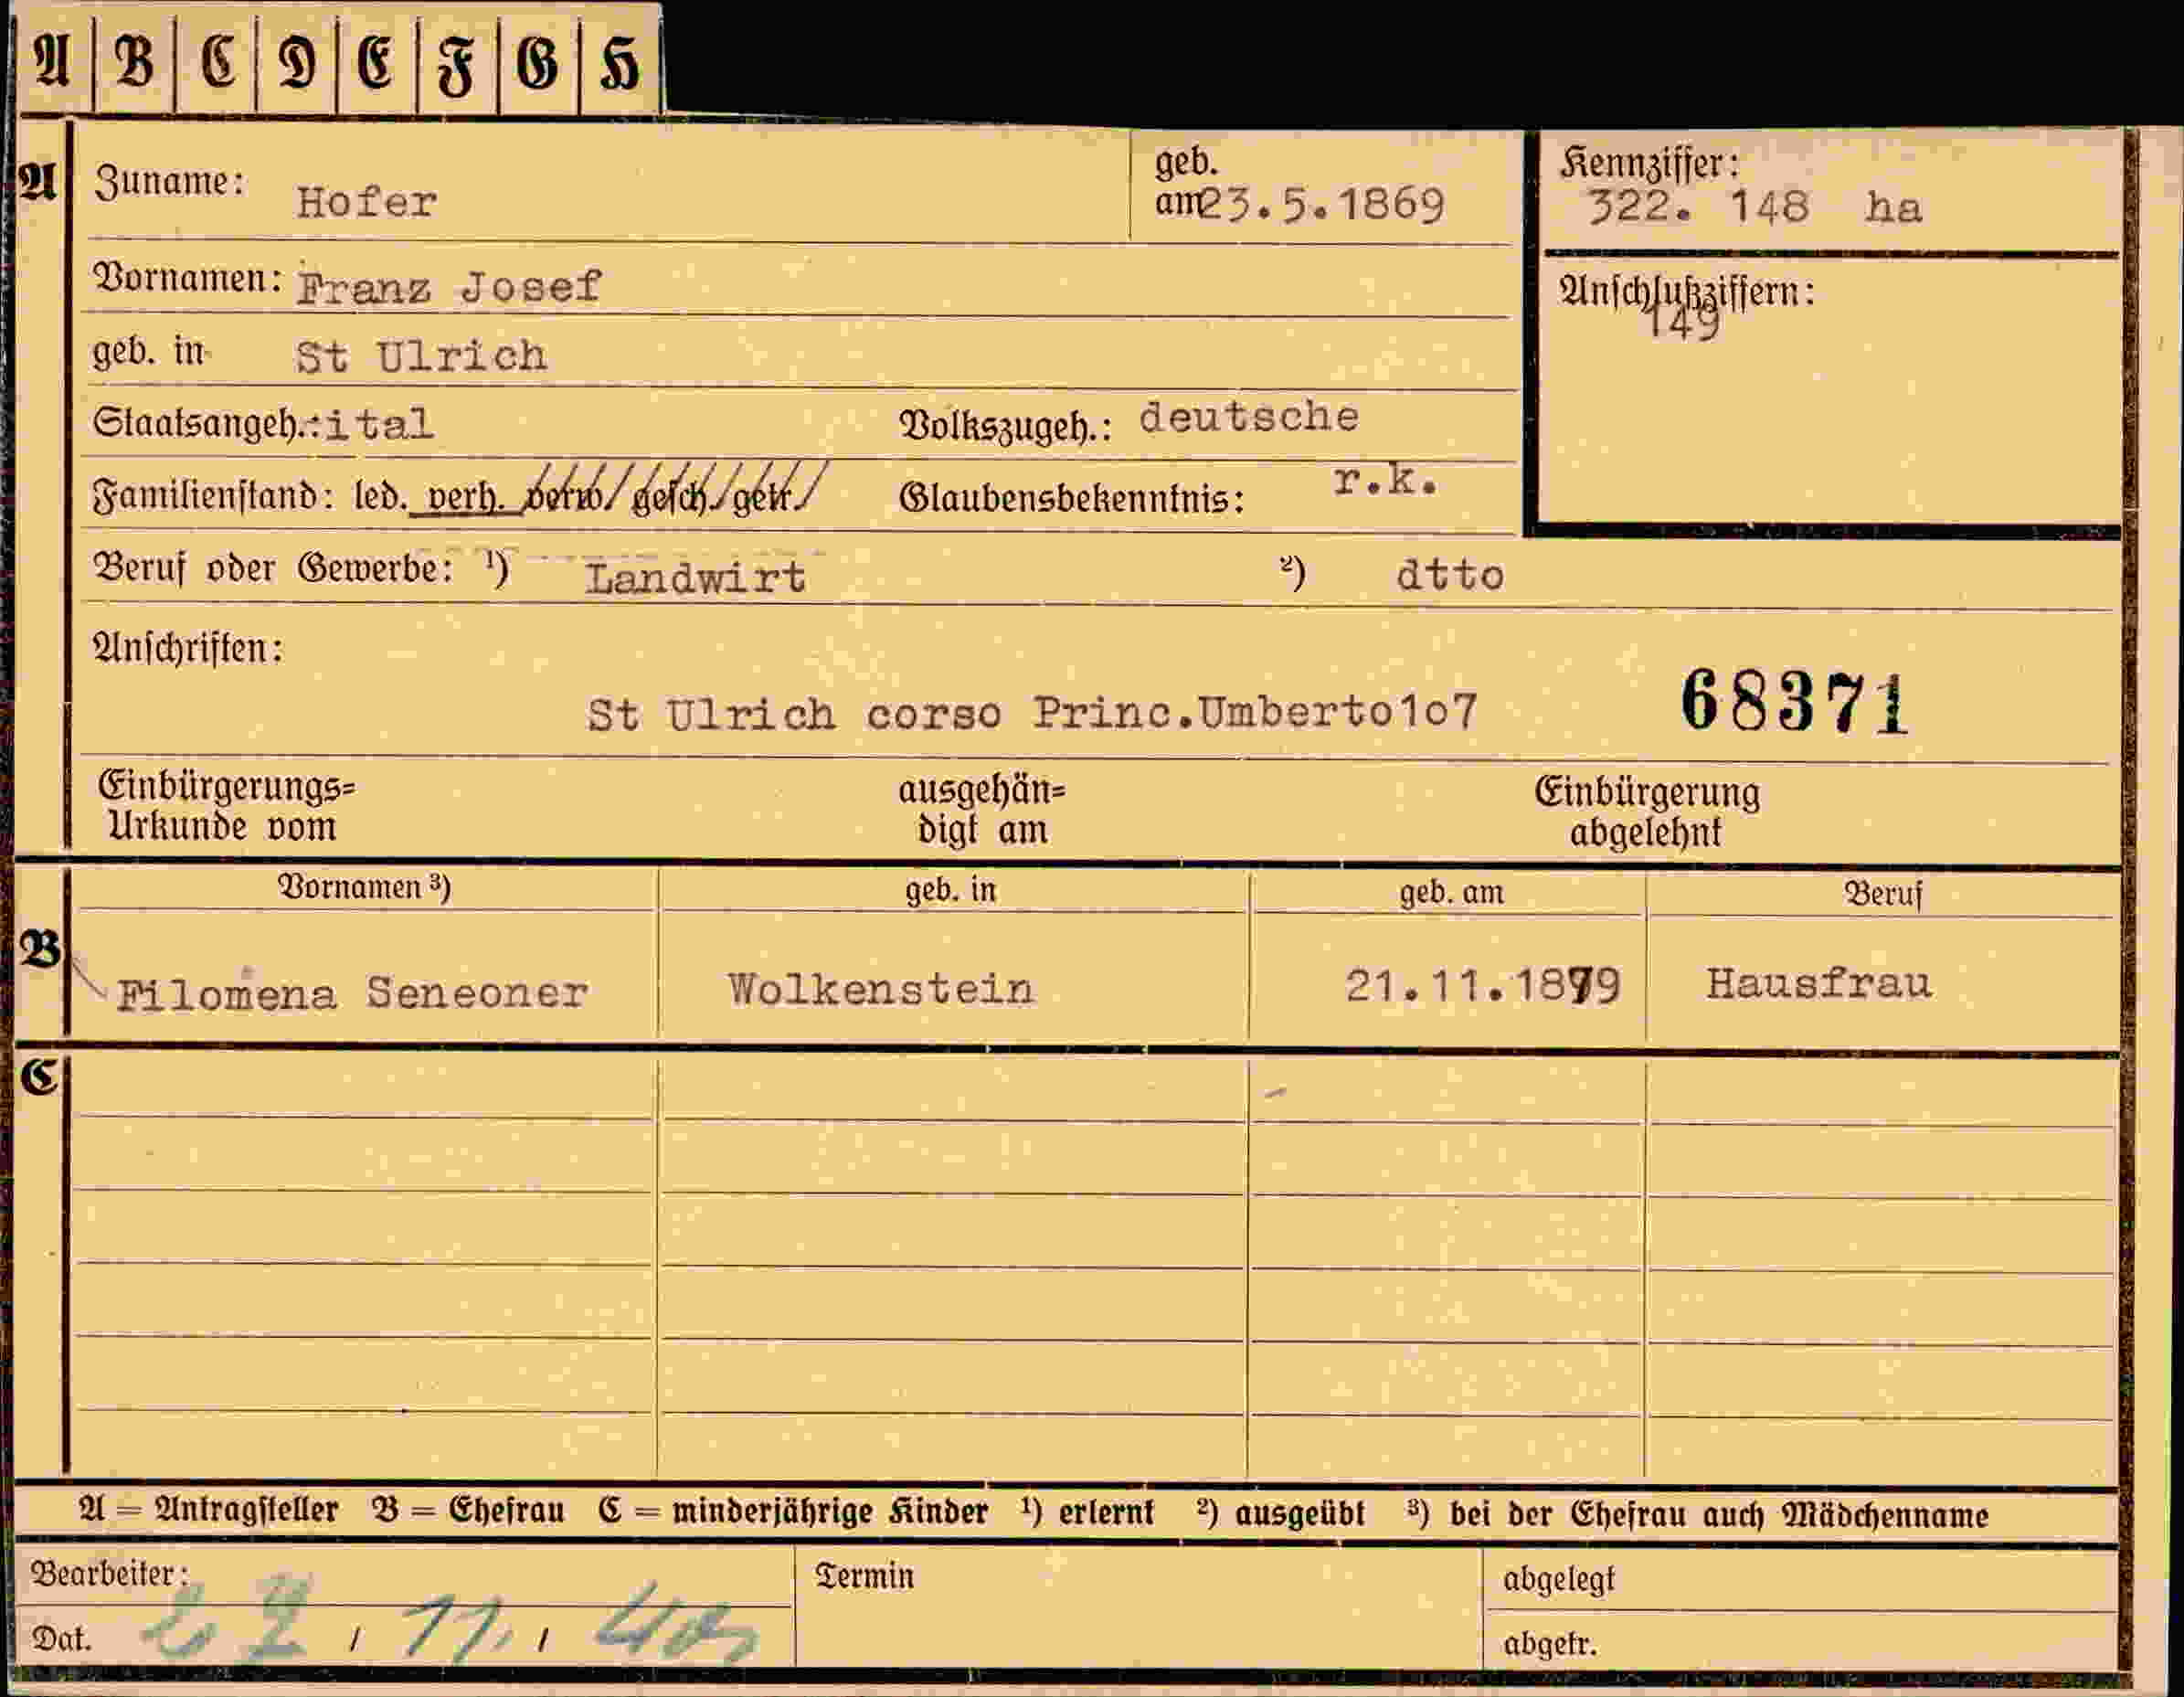 A B C D E F G H
A Zuname: Hofer geb. am 23.5.1869 Kennziffer: 322. 148 ha
Vornamen: Franz Josef Anschlußziffern: 149
geb. in St Ulrich
Staatsangeh.: ital Volkszugeh.: deutsche
Familienstand: led. verh. verw. gesch. getr. Glaubensbekenntnis: r.k.
Beruf oder Gewerbe: ¹) Landwirt ²) dtto
Anschriften:
St Ulrich corso Princ.Umberto1o7 68371
Einbürgerungs= ausgehän= Einbürgerung
Urkunde vom digt am abgelehnt
B Vornamen ³) geb. in geb. am Beruf
Filomena Seneoner Wolkenstein 21.11.1879 Hausfrau
C
A = Antragsteller B = Ehefrau C = minderjährige Kinder ¹) erlernt ²) ausgeübt ³) bei der Ehefrau auch Mädchenname
Bearbeiter: Termin abgelegt
Dat. / 11. / 40 abgetr.